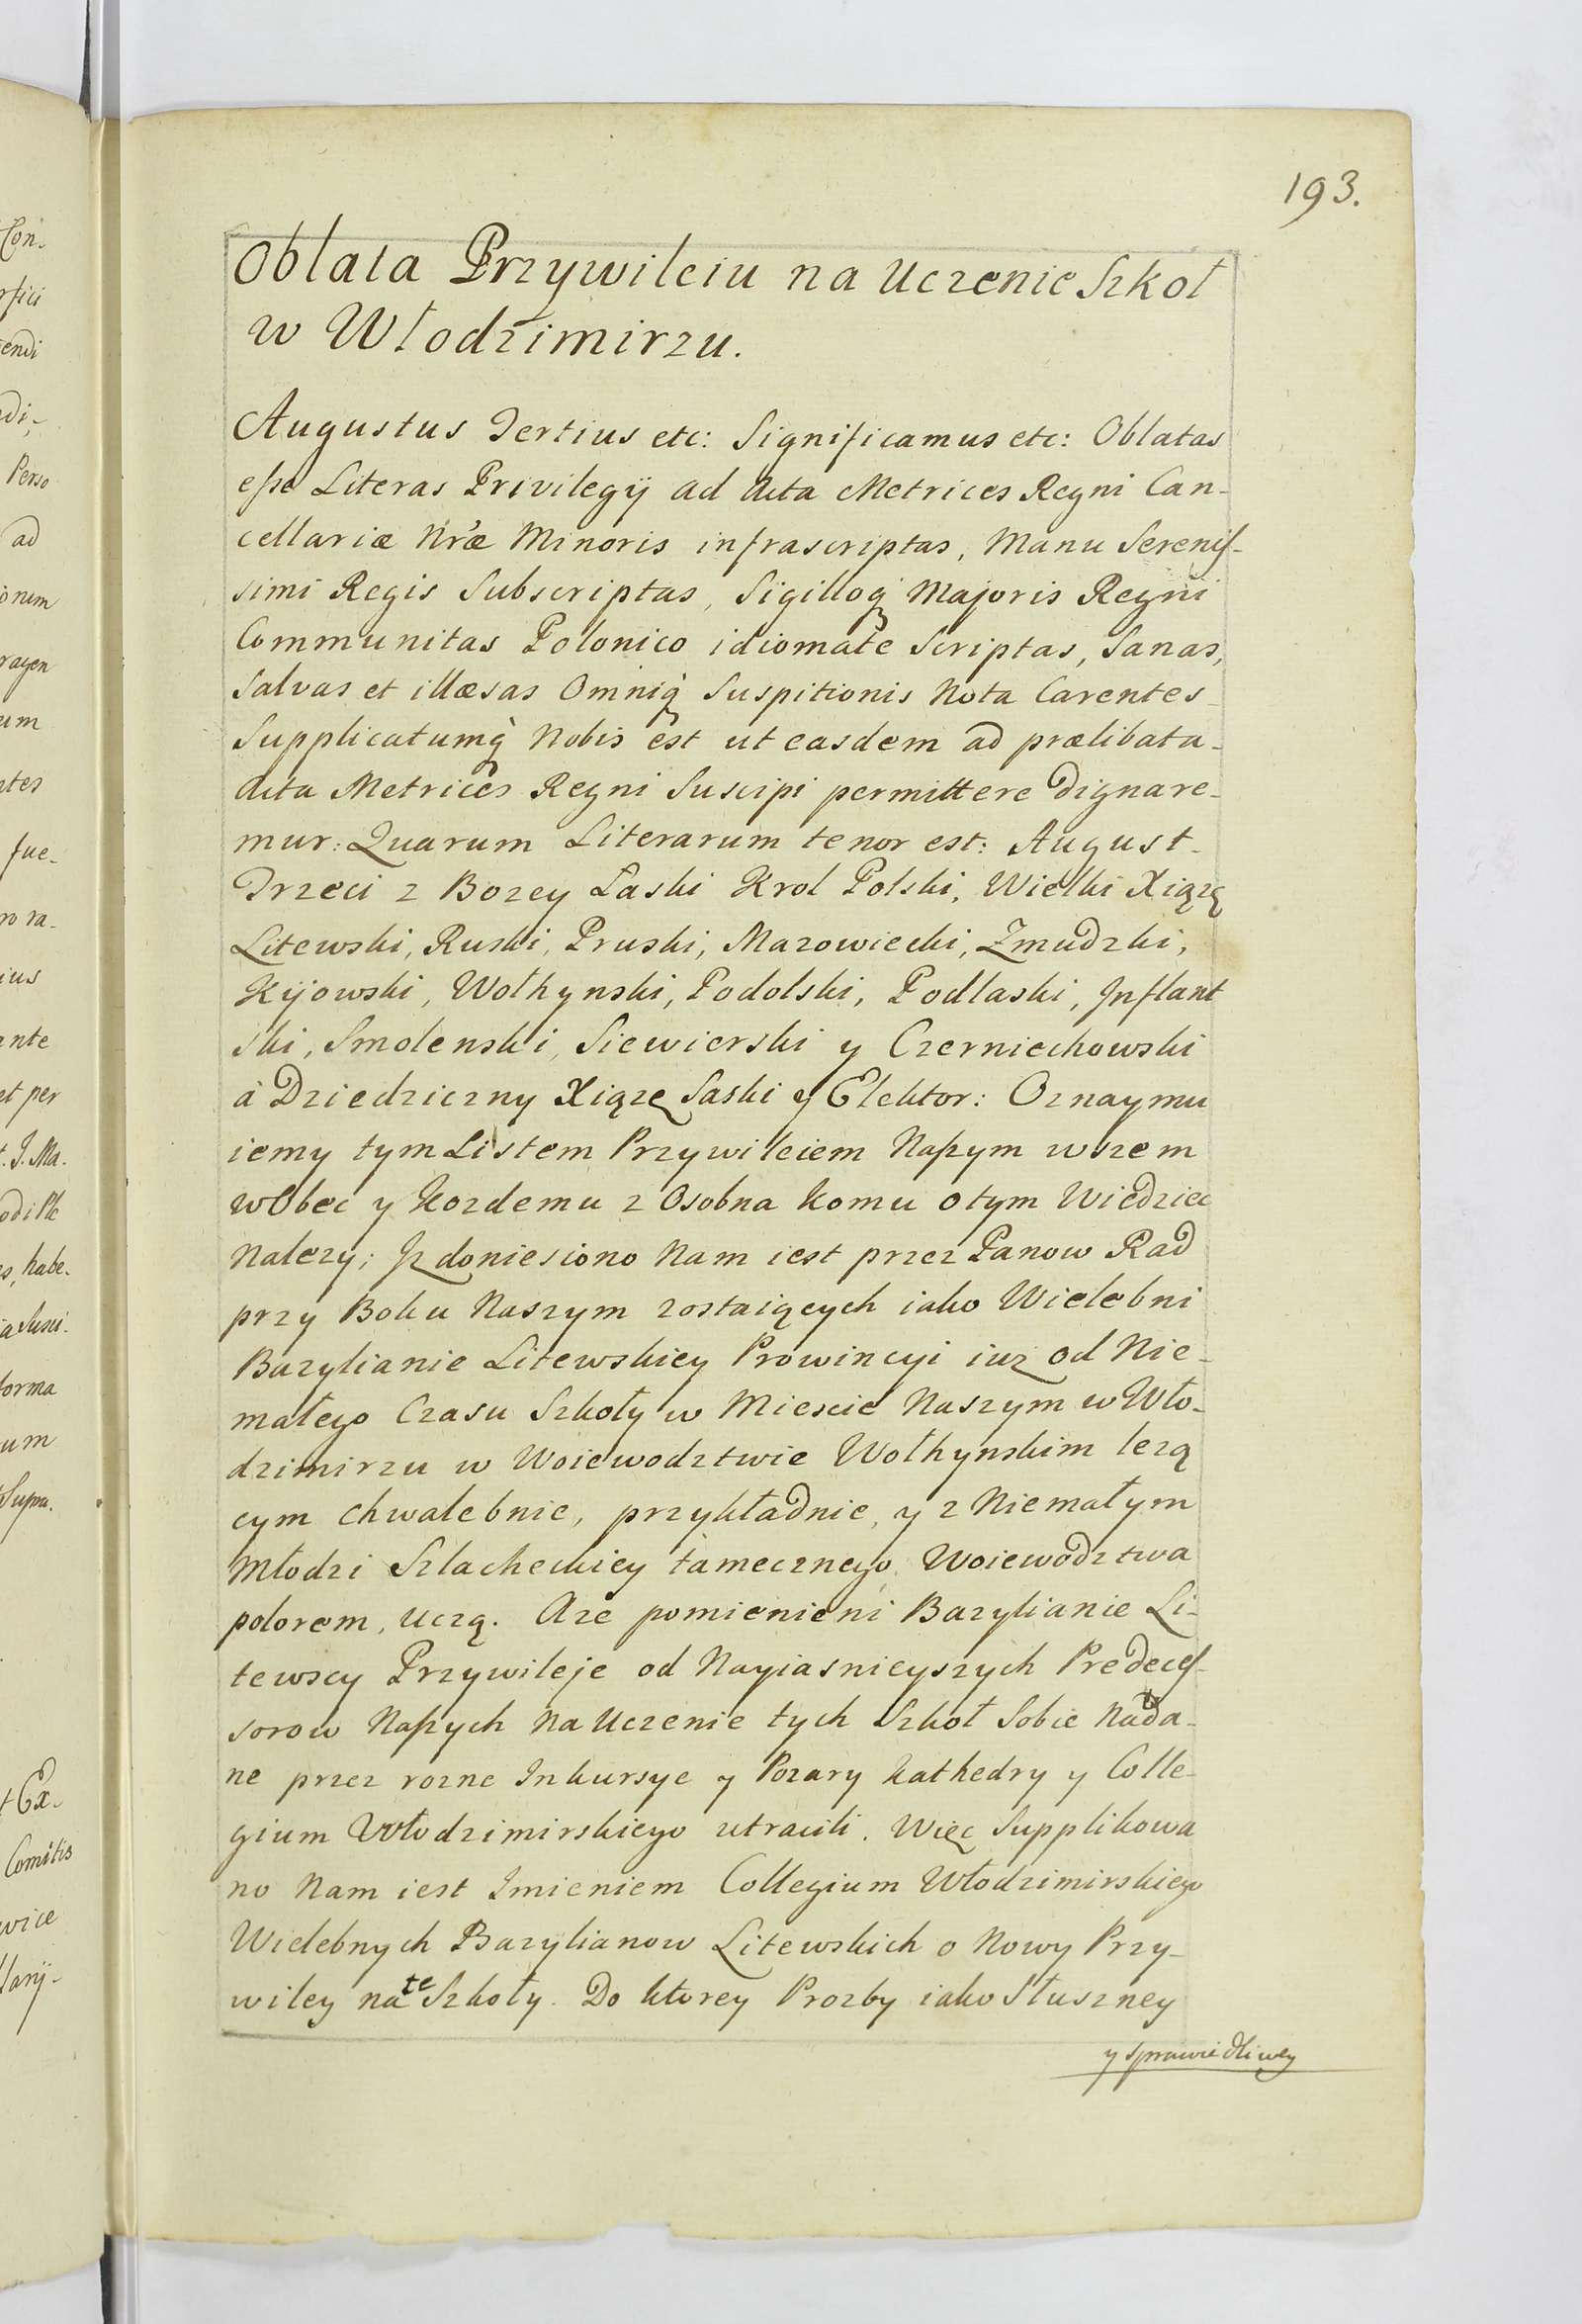 193.
Oblata Przywileiu na Uczenie Szkoł
w Włodzimirzu.
Augustus Tertius etc: Significamus etc: Oblatas
esse Literas Privilegij ad Acta Metrices Regni Can-
cellariæ Nræ Minoris infrascriptas, Manu Serenis-
simi Regis Subscriptas, Sigilloq; Majoris Regni
Communitas Polonico idiomate Scriptas, Sanas,
Salvas et illæsas Omniq; Suspitionis Nota Carentes
Supplicatumq; Nobis est ut easdem ad prælibata
Acta Metrices Regni Suscipi permittere Dignare-
mur: Quarum Literarum tenor est: August
Trzeci z Bozey Łaski Krol Polski, Wielki Xiązę
Litewski, Ruski, Pruski, Mazowiecki, Zmudzki,
Kijowski, Wołhynski, Podolski, Podlaski, Inflant
ski, Smolenski, Siewierski y Czerniechowski
à Dziedziczny Xiązę Saski y Elektor: Oznaymu
iemy tym Listem Przywileiem Naszym wszem
wObec y Kozdemu z Osobna komu o tym Wiedziec
Nalezy; Iz doniesiono Nam iest przez Panow Rad
przy Boku Naszym zostaiących iako Wielebni
Bazylianie Litewskiey Prowincyi iuz od Nie-
małego Czasu Szkoły w Miescie Naszym w Wło-
dzimirzu w Woiewodztwie Wołhynskim lezą
cym chwalebnie, przykładnie, y z Niemałym
Młodzi Szlacheckiey tamecznego Woiewodztwa
polorem, uczą. Aze pomienieni Bazylianie Li-
tewscy Przywileje od Nayiasnieyszych Predeces-
sorow Naszych Na Uczenie tych Szkoł Sobie Nada-
ne przez rozne Inkursye y Pozary Kathedry y Colle-
gium Włodzimirskiego utracili. Więc Supplikowa
no Nam iest Imieniem Collegium Włodzimirskiego
Wielebnych Bazylianow Litewskich o Nowy Przy-
wiley na te Szkoły. Do ktorey Prozby iako Słuszney
y sprawiedliwey